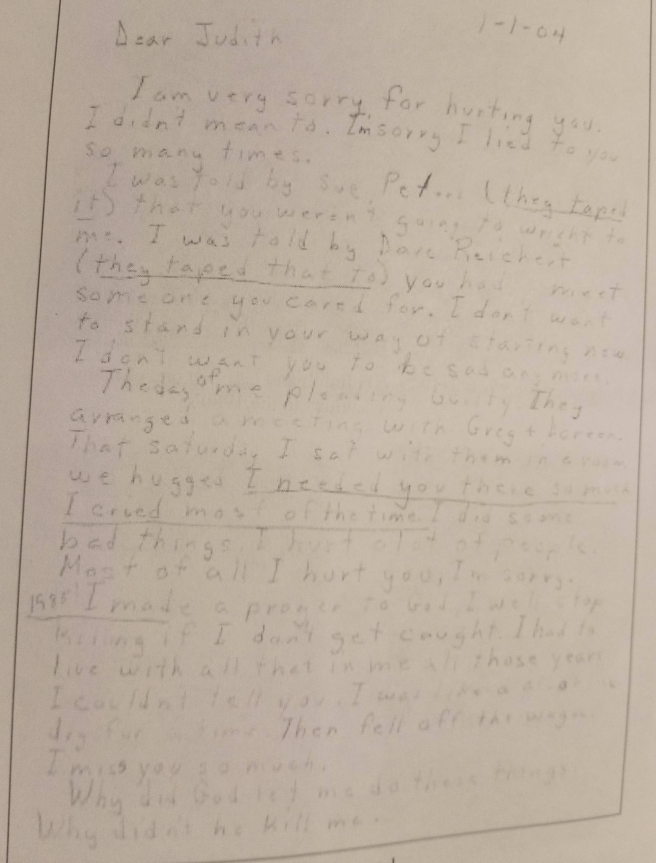 1-1-04
Dear Judith
I am very sorry for hurting you.
I didn't mean to. Im sorry I lied to you
so many times.
I was told by Sue Pet... (they taped
it) that you weren't going to wright to
me. I was told by Dave Reichert
(they taped that to) you had meet
some one you cared for. I don't want
to stand in your way of starting new
I don't want you to be sad any more.
The day of me pleading Guilty They
arranged a meeting with Greg +
That saturday I sat with them in a room
we hugged I needed you there so much
I cryed most of the time. I did some
bad things. I hurt alot of people.
Most of all I hurt you, I'm sorry.
1985 I made a promer to God, I well stop
killing if I don't get caught. I had to
live with all that in me all those years
I couldnt tell you. I was like a
dry for a time. Then fell off the wagon.
I miss you so much.
Why did God let me do these things.
Why didn't he kill me.